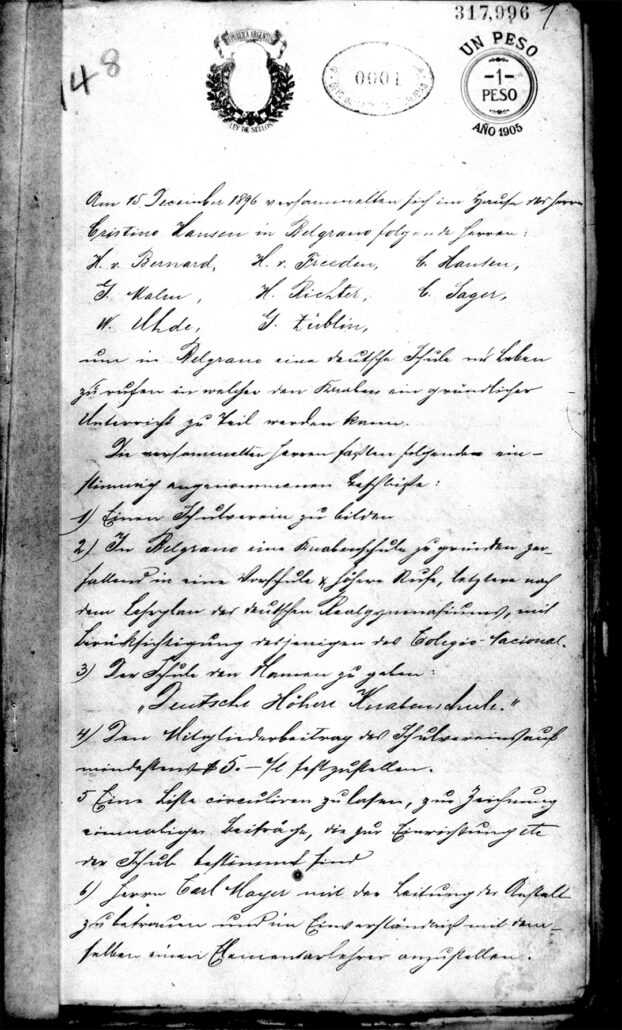 317,996
148
REPUBLICA ARGENTINA
LEY DE SELLOS
0001
UN PESO
-1-
PESO
AÑO 1905
Am 15 December 1896 versammelten sich im Hause des Herrn
Cristino Hansen in Belgrano folgende Herren:
H. v. Bernard, H. v. Freeden, C. Hansen,
J. Malm, H. Richter, C. Sager,
W. Uhde, G. Züblin,
um in Belgrano eine deutsche Schule ins Leben
zu rufen in welcher den Knaben ein gründlicher
Unterricht zu Teil werden kann.
Die versammelten Herren faßten folgende ein-
stimmig angenommenen Beschlüße:
1) Einen Schulverein zu bilden
2) In Belgrano eine Knabenschule zu gründen zer-
fallend in eine Vorschule & höhere letztere nach
dem Lehrplan des deutschen Realgymnasiums, mit
Berücksichtigung desjenigen des Colegio Nacional.
3) Der Schule den Namen zu geben:
„Deutsche Höhere Knabenschule."
4) Den Mitgliederbeitrag des Schulvereins auf
mindestens $ 5.- festzustellen.
5 Eine Liste circuliren zu lassen, zur Zeichnung
einmaliger Beiträge, die zur Einrichtung etc
der Schule bestimmt sind
6) Herrn Carl Mayer mit der Leitung der Anstalt
zu betrauen und im Einverständniß mit dem-
selben einen Elementarlehrer anzustellen.